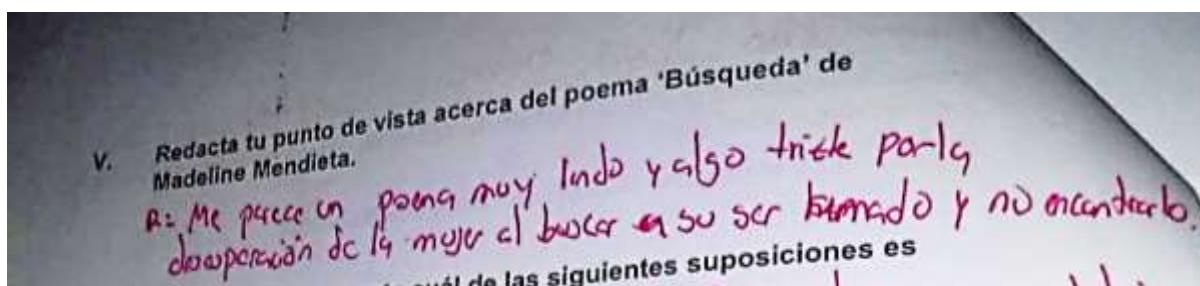 V. Redacta tu punto de vista acerca del poema 'Búsqueda' de
Madeline Mendieta.
R: Me parece un poema muy lindo y algo triste por la
desesperación de la mujer al buscar a su ser y no encontrarlo.
cuál de las siguientes suposiciones es